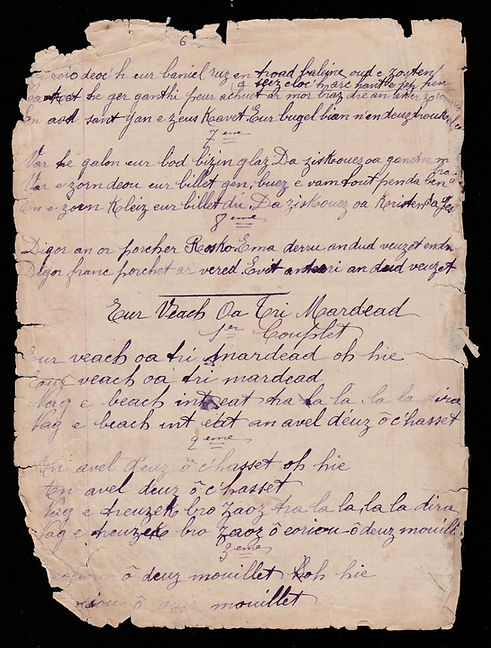 6
deoc'h eur baniel ruz en troad baleine oud e zouten
he ger ganthi peur achuet ar mor braz dre an
an aod sant yan e zeus Kavet Eur bugel bian n'en deuz
7eme
Var hé galon eur bod bizin glaz Da ziskouez oa
Var e zorn deou eur billet gen, buez e vam tout penda ben
En e zorn Kleiz eur billet du Da ziskouez oa Kristen
8eme
Digor an or porcher Rosko Ema derru an dud veuzet
Digor franc porchet ar vered Evit an dud veuzet
Eur Veach Oa Tri Mardead
1er Couplet
Eur veach oa tri mardead oh hie
Eur veach oa tri mardead
Vag e beach int eat tra la la la la dira
Vag e beach int eat an avel déuz ô c'hasset
2eme
An avel deuz ô c'hasset oh hie
An avel deuz ô c'hasset
Vag e treuzek bro zaoz tra la la, la la dira
Vag e treuzek bro zaoz ô eoriou ô deuz mouillet
3eme
ô deuz mouillet oh hie
ô deuz mouillet